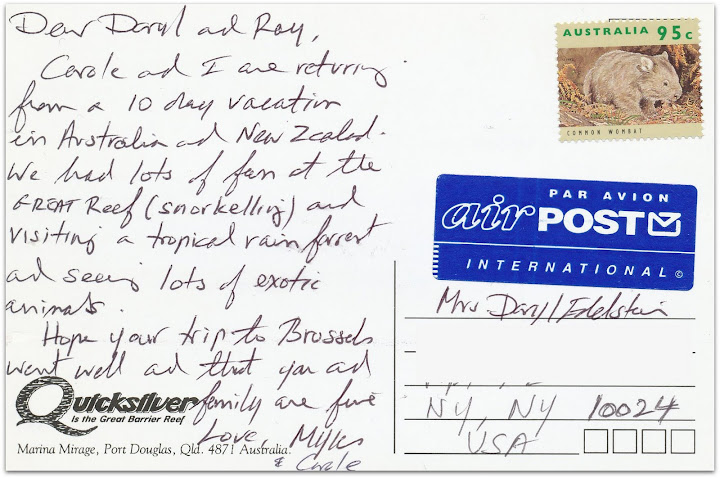 Dear Daryl ad Ray,
Carole ad I are returing
from a 10 day vacation
in Australia ad New Zealad.
We had lots of fun at the
GREAT Reef (snorkelling) and
visiting a tropical rain forrest
ad seeing lots of exotic
animals.
Hope your trip to Brussels
went well ad that you ad
family are fine
Love, Myles
& Carole
Quicksilver
Is the Great Barrier Reef
Marina Mirage, Port Douglas, Qld. 4871 Australia.
AUSTRALIA 95c
COMMON WOMBAT
PAR AVION
air POST
INTERNATIONAL ©
Mrs Daryl Edelstein
NY, NY 10024
USA